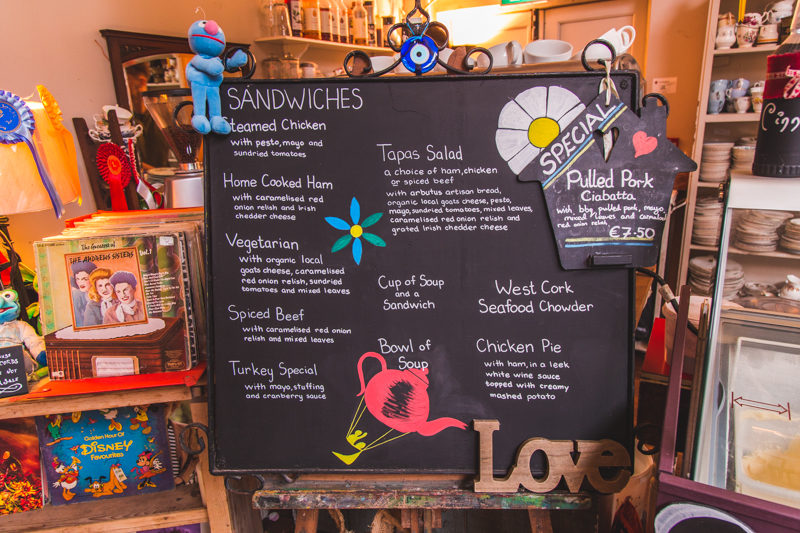 SANDWICHES
Steamed Chicken
with pesto, mayo and
sundried tomatoes
Home Cooked Ham
with caramelised red
onion relish and Irish
chedder cheese
Vegetarian
with organic local
goats cheese, caramelised
red onion relish, sundried
tomatoes and mixed leaves
Spiced Beef
with caramelised red onion
relish and mixed leaves
Turkey Special
with mayo, stuffing
and cranberry sauce
Tapas Salad
a choice of ham, chicken
or spiced beef
with arbutus artisan bread,
organic local goats cheese, pesto,
mayo, sundried tomatoes, mixed leaves,
caramelised red onion relish and
grated Irish chedder cheese
Cup of Soup
and a
Sandwich
Bowl of
Soup
West Cork
Seafood Chowder
Chicken Pie
with ham, in a leek
white wine sauce
topped with creamy
mashed potato
SPECIAL
Pulled Pork
Ciabatta
with bbq pulled pork, mayo,
mixed leaves and
red onion relish
€7.50
Love
The Greatest of
THE ANDREWS SISTERS
Vol. 1
Golden Hour Of
DISNEY
Favourites